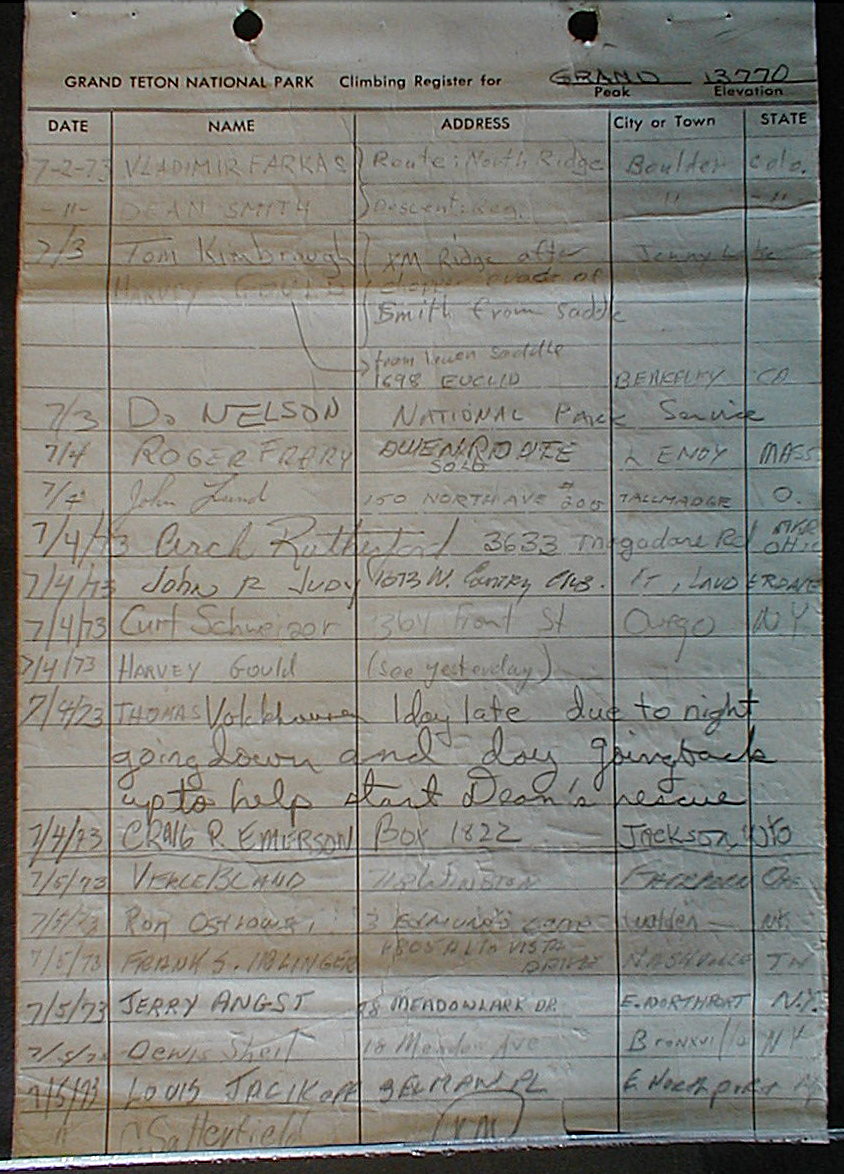 GRAND TETON NATIONAL PARK Climbing Register for GRAND 13770
Peak Elevation
DATE NAME ADDRESS City or Town STATE
7-2-73 VLADIMIR FARKAS Route: North Ridge Boulder Colo.
-"- DEAN SMITH Descent: Reg. " -"-
7/3 Tom Kimbrough XM Ridge after Jenny Lake
HARVEY GOULD of
Smith from Saddle
from lower saddle
1698 EUCLID BERKELEY CA
7/3 D. NELSON NATIONAL PARK Service
7/4 ROGER FRARY OWEN ROUTE LENOX MASS
SOLO
7/4 John Lund 150 NORTH AVE # 205 TALLMADGE O.
7/4/73 Arch Rutherford 3633 Mogadore Rd OHIO
7/4/73 John R JUDY 1673 W. Country Club. FT, LAUDERDALE
7/4/73 Curt Schweizer 364 Front St Owego NY
7/4/73 HARVEY Gould (see yesterday)
7/4/73 THOMAS 1 day late due to night
going down and day going back
up to help start Dean's rescue
7/4/73 CRAIG R EMERSON BOX 1822 JACKSON, WYO
7/5/73 BLAND
7/5/73 Ron
7/5/73 FRANK S. 4805 ALTA VISTA
DRIVE NASHVILLE TN
7/5/73 JERRY ANGST 98 MEADOWLARK DR. E. NORTHPORT N.Y.
7/5/73 18 Meadow Ave Bronxville NY
7/5/73 LOUIS PL E. Northport
" Satterfield